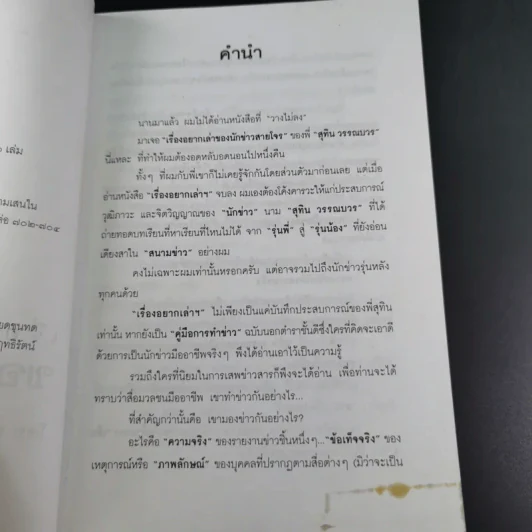 คำนำ
นานมาแล้ว ผมไม่ได้อ่านหนังสือที่ "วางไม่ลง"
มาเจอ "เรื่องอยากเล่าของนักข่าวสายโจร" ของพี่ "สุทิน วรรณบวร"
นี่แหละ ที่ทำให้ผมต้องอดหลับอดนอนไปหนึ่งคืน
ทั้งๆ ที่ผมกับพี่เขาก็ไม่เคยรู้จักกันโดยส่วนตัวมาก่อนเลย แต่เมื่อ
อ่านหนังสือ "เรื่องอยากเล่าฯ" จบลง ผมเองต้องโค้งคารวะให้แก่ประสบการณ์
วุฒิภาวะ และจิตวิญญาณของ "นักข่าว" นาม "สุทิน วรรณบวร" ที่ได้
ถ่ายทอดบทเรียนที่หาเรียนที่ไหนไม่ได้ จาก "รุ่นพี่" สู่ "รุ่นน้อง" ที่ยังอ่อน
เดียงสาใน "สนามข่าว" อย่างผม
คงไม่เฉพาะผมเท่านั้นหรอกครับ แต่อาจรวมไปถึงนักข่าวรุ่นหลัง
ทุกคนด้วย
"เรื่องอยากเล่าฯ" ไม่เพียงเป็นแค่บันทึกประสบการณ์ของพี่สุทิน
เท่านั้น หากยังเป็น "คู่มือการทำข่าว" ฉบับนอกตำราชั้นดีซึ่งใครที่คิดจะเอาดี
ด้วยการเป็นนักข่าวมืออาชีพจริงๆ พึงได้อ่านเอาไว้เป็นความรู้
รวมถึงใครที่นิยมในการเสพข่าวสารก็พึงจะได้อ่าน เพื่อท่านจะได้
ทราบว่าสื่อมวลชนมืออาชีพ เขาทำข่าวกันอย่างไร...
ที่สำคัญกว่านั้นคือ เขามองข่าวกันอย่างไร?
อะไรคือ "ความจริง" ของรายงานข่าวชิ้นหนึ่งๆ..."ข้อเท็จจริง" ของ
เหตุการณ์หรือ "ภาพลักษณ์" ของบุคคลที่ปรากฏตามสื่อต่างๆ (มิว่าจะเป็น
เล่ม
ามเสนใน
๘๐๒-๘๐๔
ยดุชุนทด
ฤทธิรัตน์